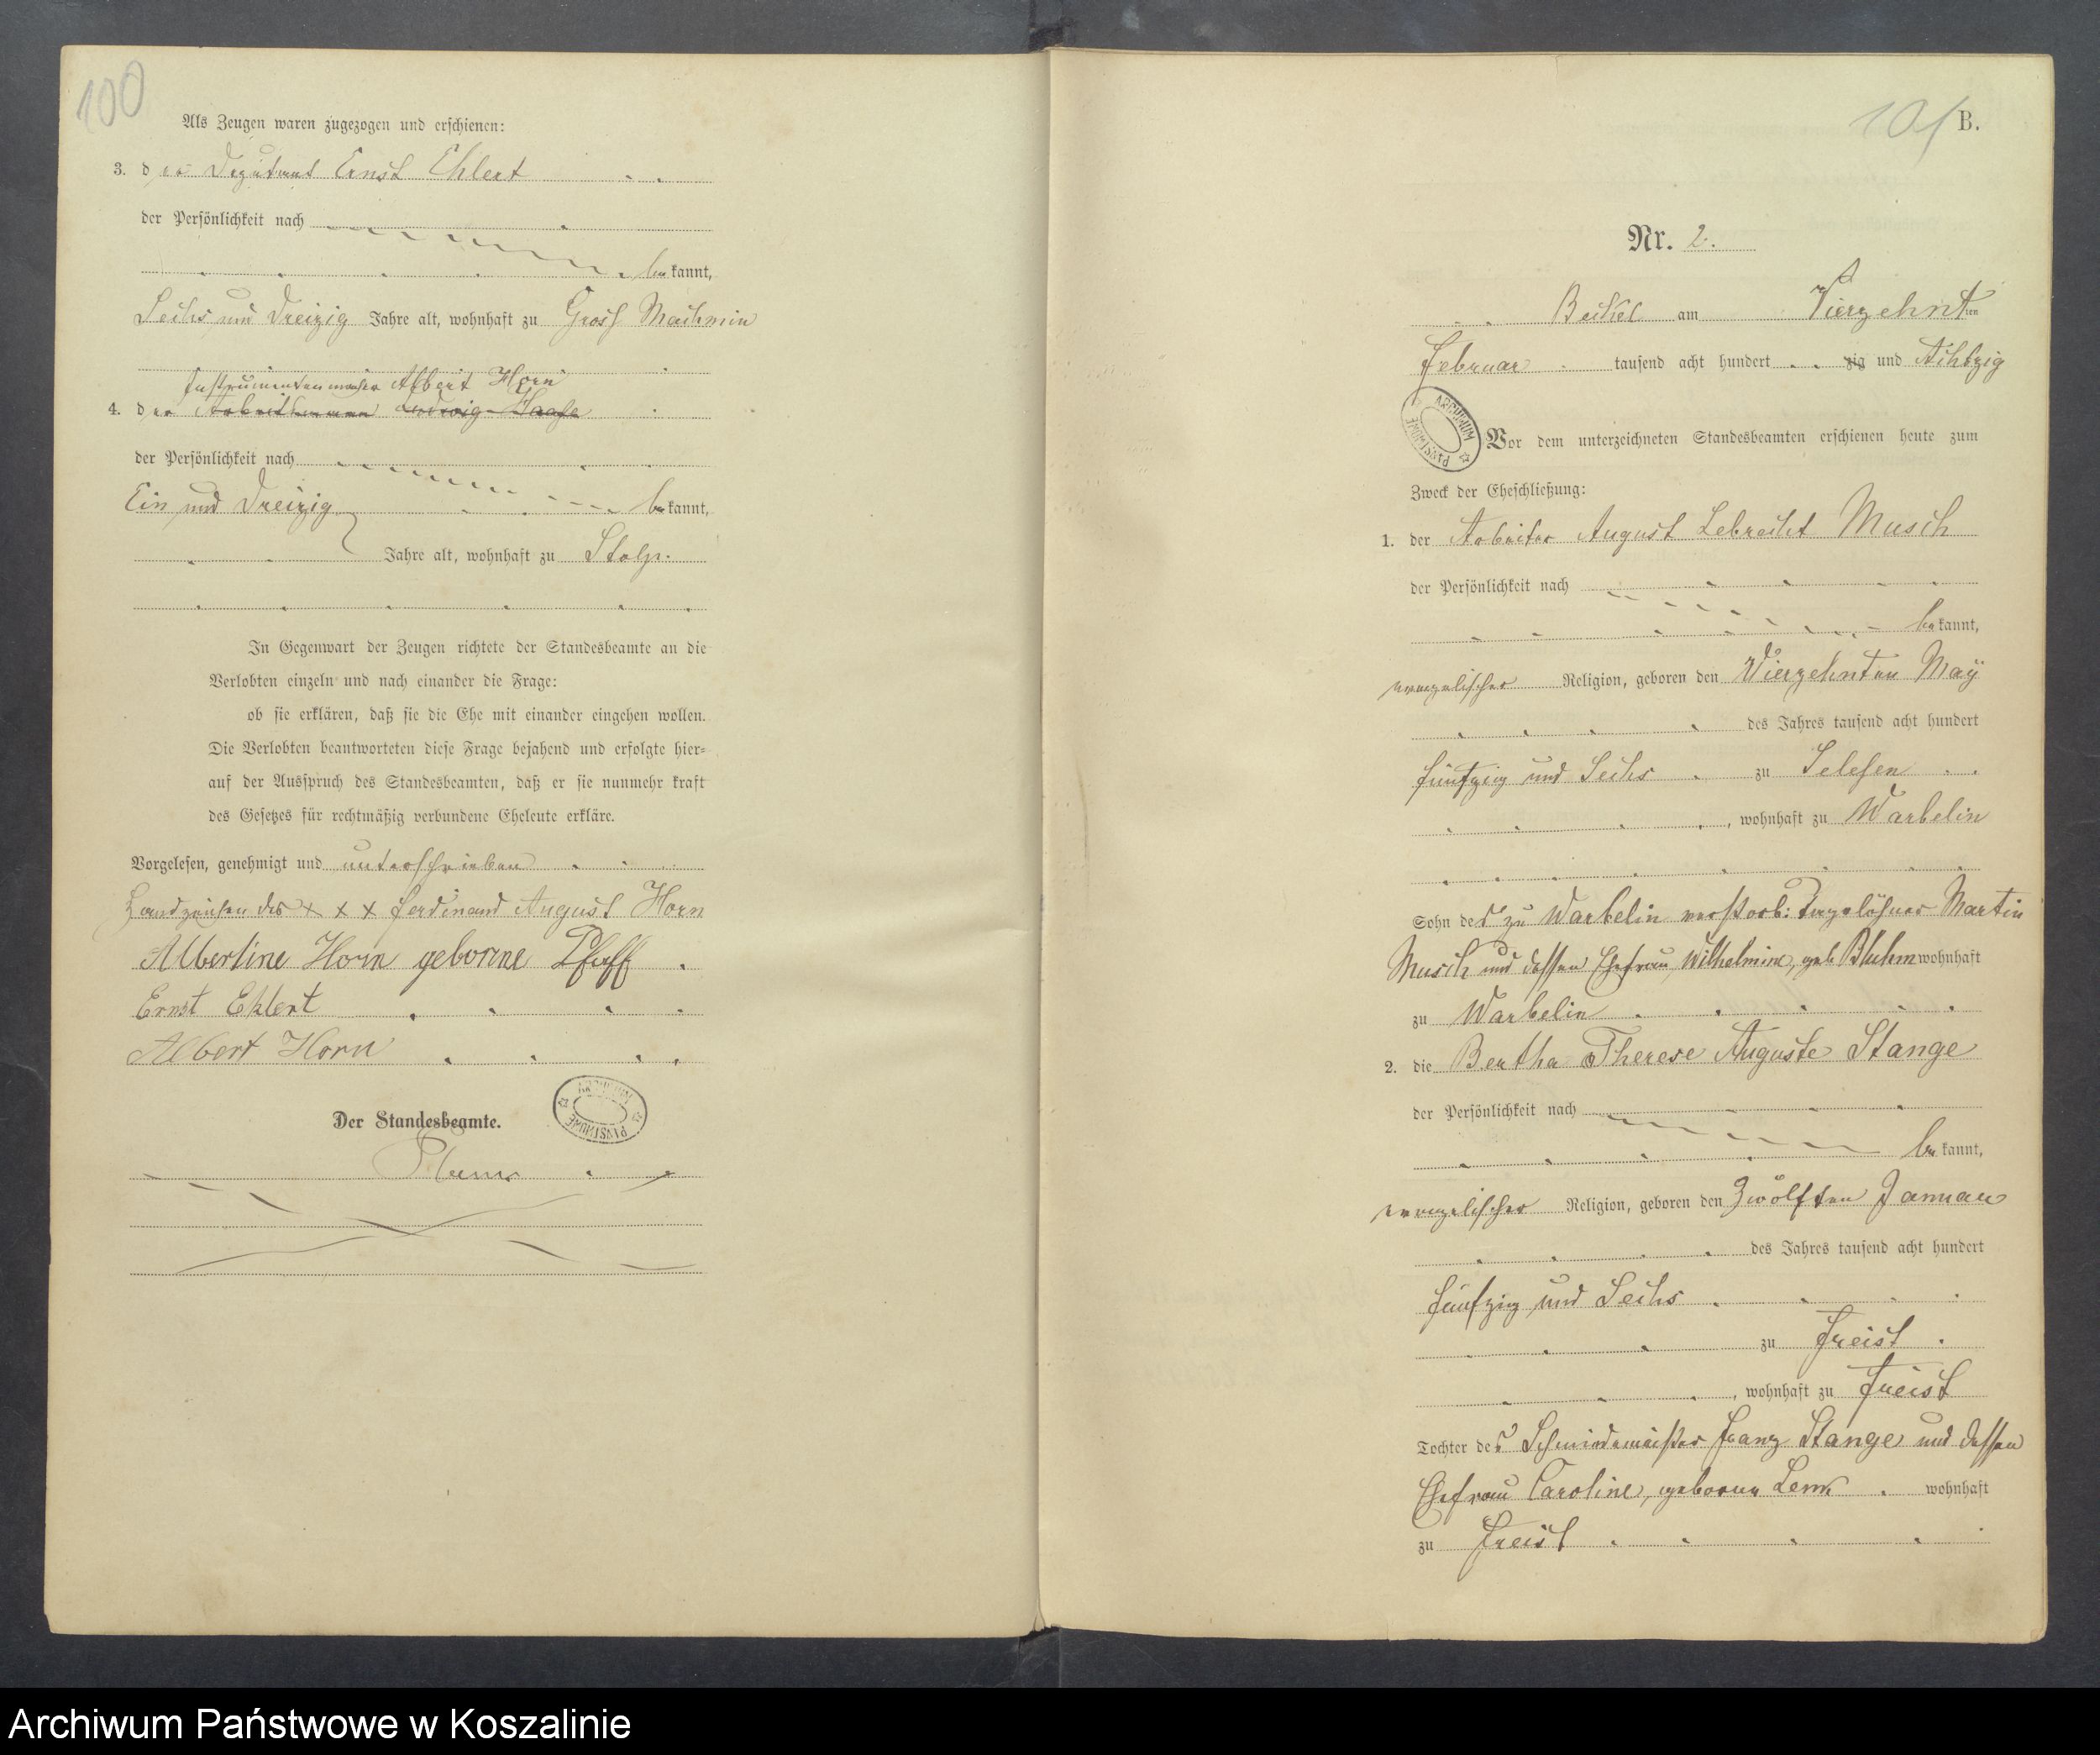 100
Als Zeugen waren zugezogen und erschienen:
3. der Deputant Ernst Ehlert
der Persönlichkeit nach
bekannt,
Sechs und dreizig Jahre alt, wohnhaft zu Gross Machmin
Instrumentenmacher Albert Horn
4. der Arbeitsmann Ludwig Haase
der Persönlichkeit nach
Ein und dreizig bekannt,
Jahre alt, wohnhaft zu Stolp.
In Gegenwart der Zeugen richtete der Standesbeamte an die
Verlobten einzeln und nach einander die Frage:
ob sie erklären, daß sie die Ehe mit einander eingehen wollen.
Die Verlobten beantworteten diese Frage bejahend und erfolgte hier=
auf der Ausspruch des Standesbeamten, daß er sie nunmehr kraft
des Gesetzes für rechtmäßig verbundene Eheleute erkläre.
Vorgelesen, genehmigt und unterschrieben
Handzeichen des x x x Ferdinand August Horn
Albertine Horn geborne Pfaff
Ernst Ehlert
Albert Horn
ARCHIWUM PAŃSTWOWE
Der Standesbeamte.
101 B.
Nr. 2.
Beckel am Vierzehnten
Februar tausend acht hundert zig und Achtzig
ARCHIWUM PAŃSTWOWE
Vor dem unterzeichneten Standesbeamten erschienen heute zum
Zweck der Eheschließung:
1. der Arbeiter August Lebrecht Musch
der Persönlichkeit nach
bekannt,
evangelischer Religion, geboren den Vierzehnten May
des Jahres tausend acht hundert
fünfzig und Sechs zu Selesen
, wohnhaft zu Warbelin
Sohn des zu Warbelin verstorb: Tagelöhner Martin
Musch und dessen Ehefrau, Wilhelmine, geb Bluhm wohnhaft
zu Warbelin
2. die Bertha Therese Auguste Stange
der Persönlichkeit nach
bekannt,
evangelischer Religion, geboren den Zwölften Januar
des Jahres tausend acht hundert
fünfzig und Sechs
zu Freist
, wohnhaft zu Freist
Tochter des Schmiedemeister Franz Stange und dessen
Ehefrau Caroline, geborne Lenk wohnhaft
zu Freist
Archiwum Państwowe w Koszalinie